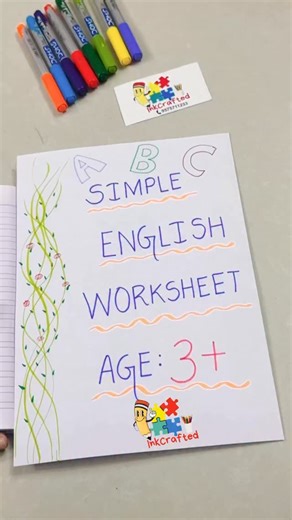 inkCrafted
A B C
SIMPLE
ENGLISH
WORKSHEET
AGE: 3+
inkCrafted